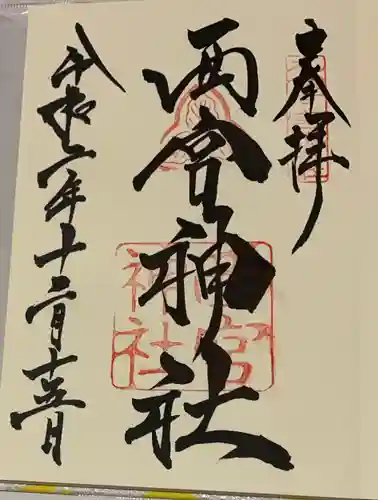 奉拝
西宮神社
西宮
神社
令和六年十二月十五日